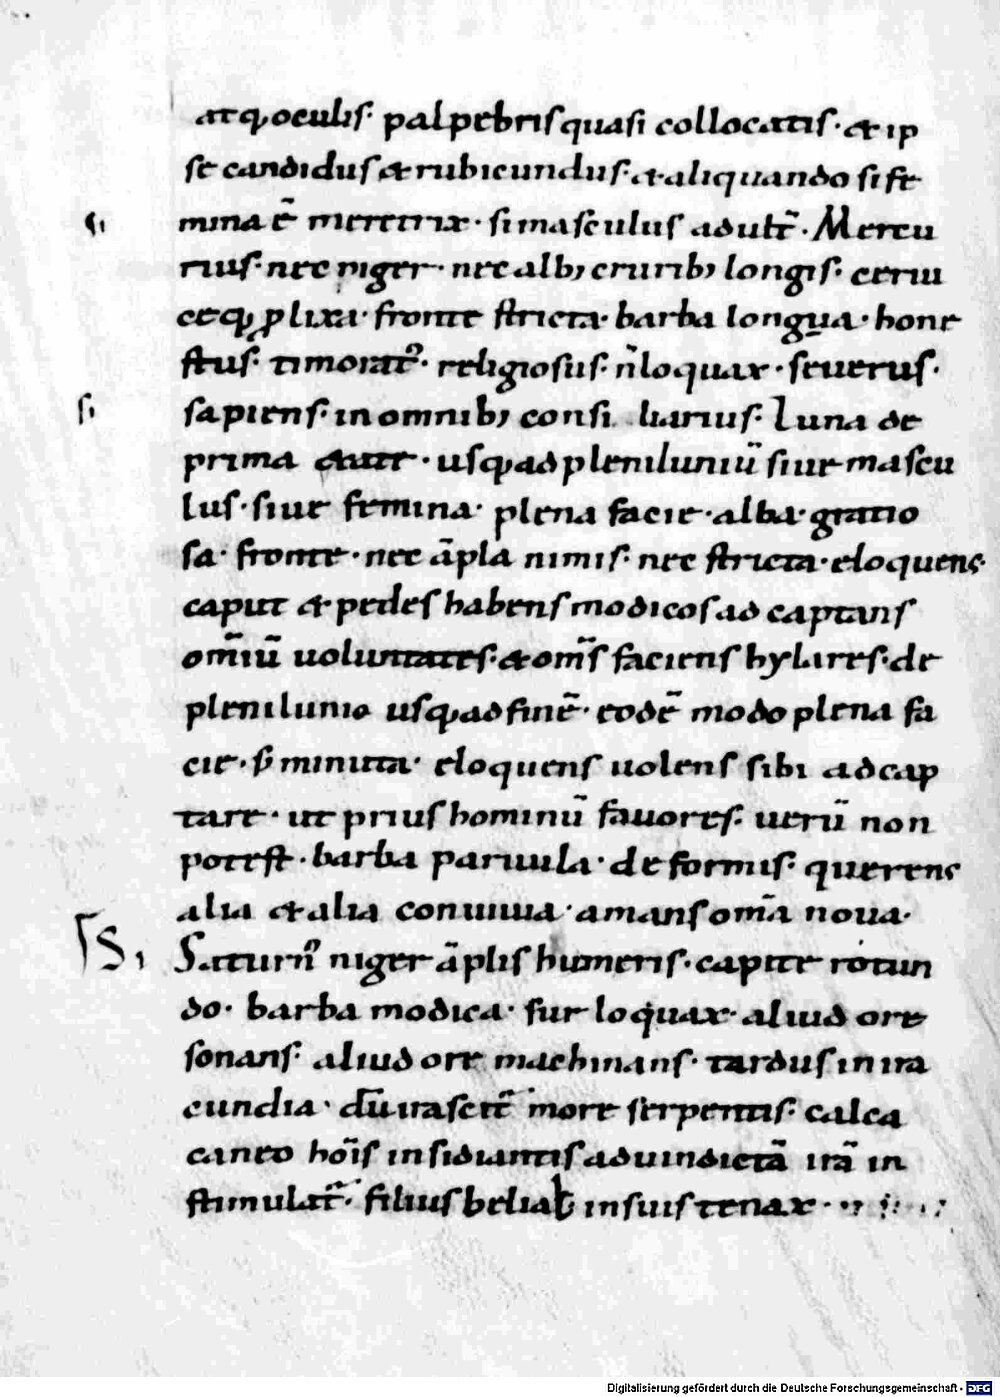 atq; oculis. palpebris quasi collocatis. & ip
se candidus & rubicundus. & aliquando si fe
mina ē meretrix. si masculus adult̄. Mercu
rius. nec niger. nec alb; crurib; longis. cerui
ceq; ꝓlixa. fronte stricta. barba longua. hone
stus. timoratꝰ. religiosus. n̄ loquax. seuerus.
sapiens. in omnib; consi liarius. Luna de
prima usq; ad pleniluniū siue mascu
lus. siue femina. plena facie. alba. gratio
sa. fronte. nec āpla nimis. nec stricta. eloquens
caput & pedes habens modicos ad captans
om̄iū uoluntates. & om̄s faciens hylares. de
plenilunio usq; ad finē. eodē modo plena fa
cie. s; minuta. eloquens uolens sibi ad cap
tare. ut prius hominū fauores. uerū non
potest. barba paruula. deformis. querens
alia & alia conuiuia. amans om̄a noua.
S, Saturnꝰ niger āplis humeris. capite rotun
do. barba modica. fur loquax. aliud ore
sonans. aliud ore machinans. tardus in ira
cundia. dū irascit̄ more serpentis. calca
caneo hōis insidiantis ad uindictā irā in
stimulat̄. filius belial in suis tenax.
Digitalisierung gefördert durch die Deutsche Forschungsgemeinschaft - DFG